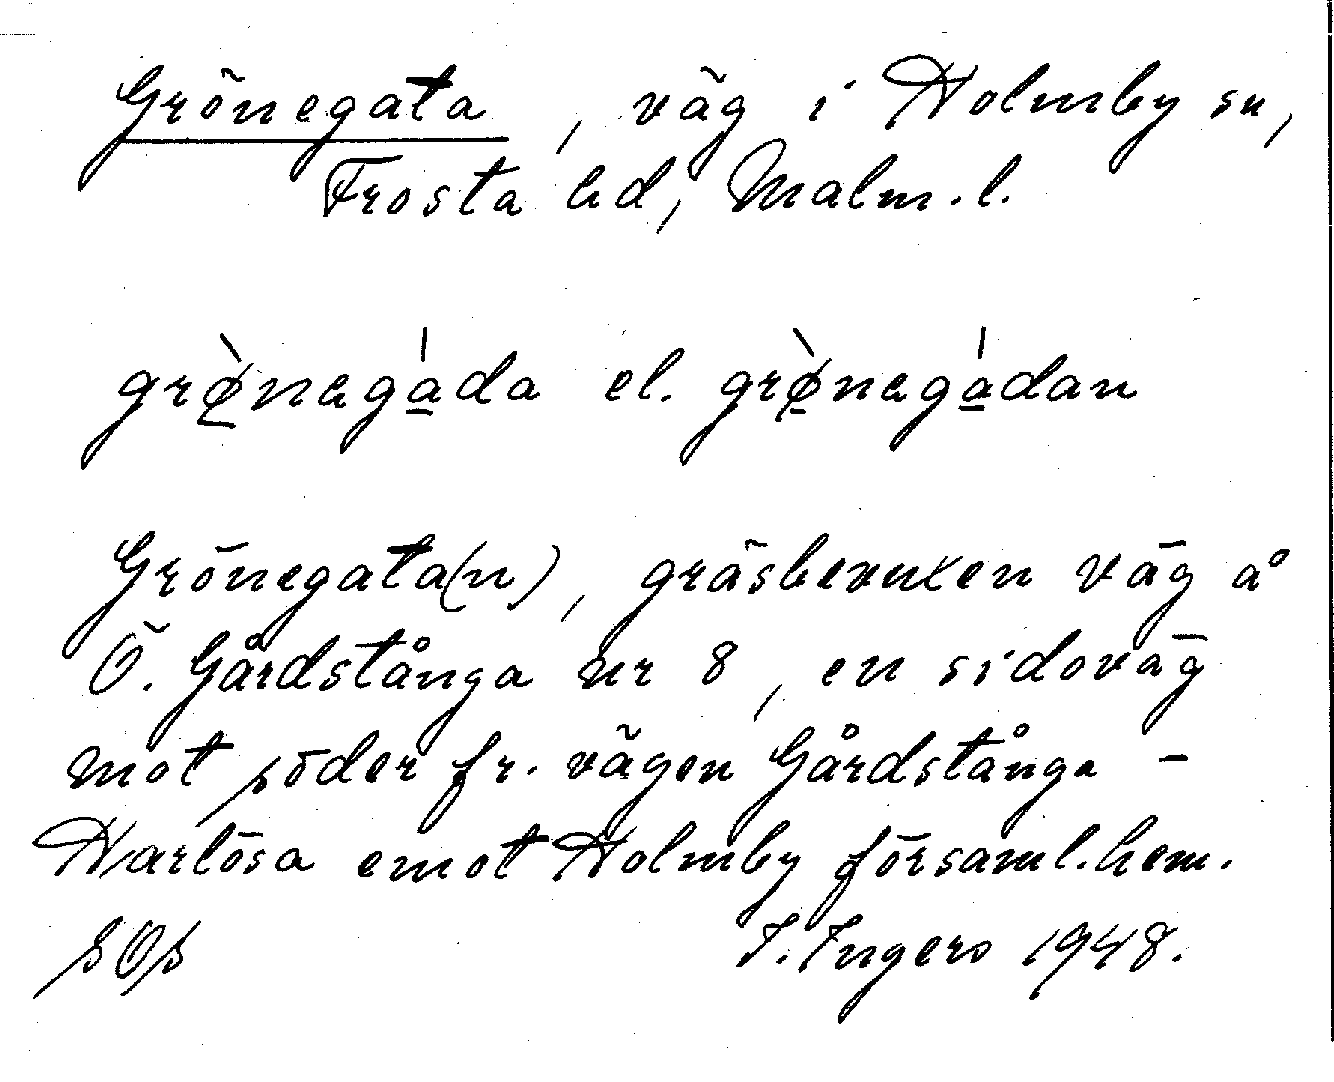 Grönegata, väg i Holmby sn,
Frosta hd, Malm.l.
grø̀negáda el. grø̀negádan
Grönegata(n), gräsbevuxen väg å
Ö. Gårdstånga nr 8, en sidoväg
mot söder fr. vägen Gårdstånga -
Harlösa emot Holmby församl.hem.
sOs I. Ingers 1948.